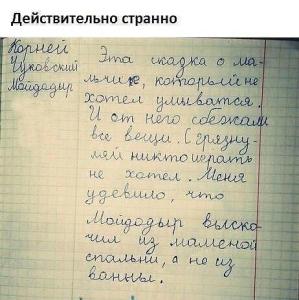 Действительно странно
Корней
Чуковский
Мойдадыр
Эта скадка о ма-
льчике, который не
хотел умыватся.
И от него сбежали
все вещи. С грязну-
лей никто играть
не хотел. Меня
удевило, что
Мойдодыр выско-
чил из маменой
спальни, а не из
ванны.